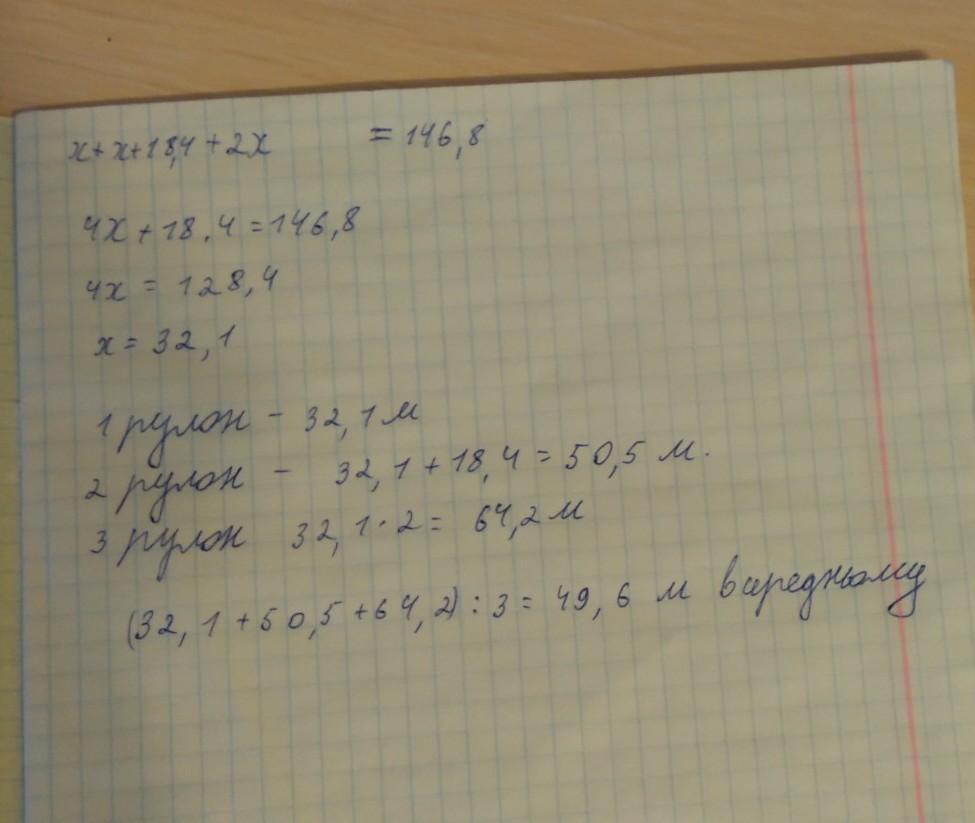 x+x+18,4+2x = 146,8
4x+18.4=146,8
4x = 128,4
x = 32,1
1 рулон - 32,1 м
2 рулон - 32,1+18,4=50,5 м.
3 рулон 32,1·2= 64,2 м
(32,1+50,5+64,2):3=49,6 м в середньому